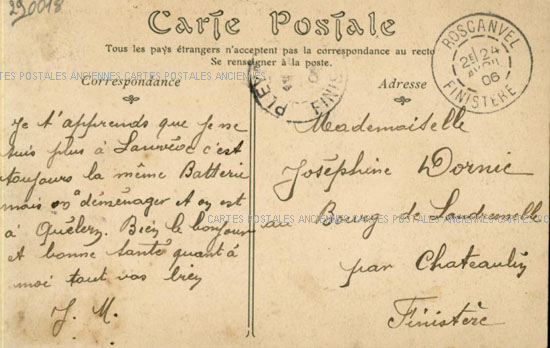 290018
Carte Postale
Tous les pays étrangers n'acceptent pas la correspondance au recto
Se renseigner à la poste.
CARTES POSTALES ANCIENNES CARTES POSTALES ANCIENNES
Correspondance
Adresse
ROSCANVEL
2E 24
AVRIL
06
FINISTÈRE
PLE
06
FINIS
Je t'apprends que je ne
suis plus à Lanvéoc c'est
toujours la même Batterie
mais on a déménager et on est
à Quélern. Bien le bonjour
et bonne santé quant à
moi tout vas bien
J. M.
Mademoiselle
Joséphine Dornic
au Bourg de
par Chateaulin
Finistère
CARTES POSTALES ANCIENNES CARTES POSTALES ANCIENNES